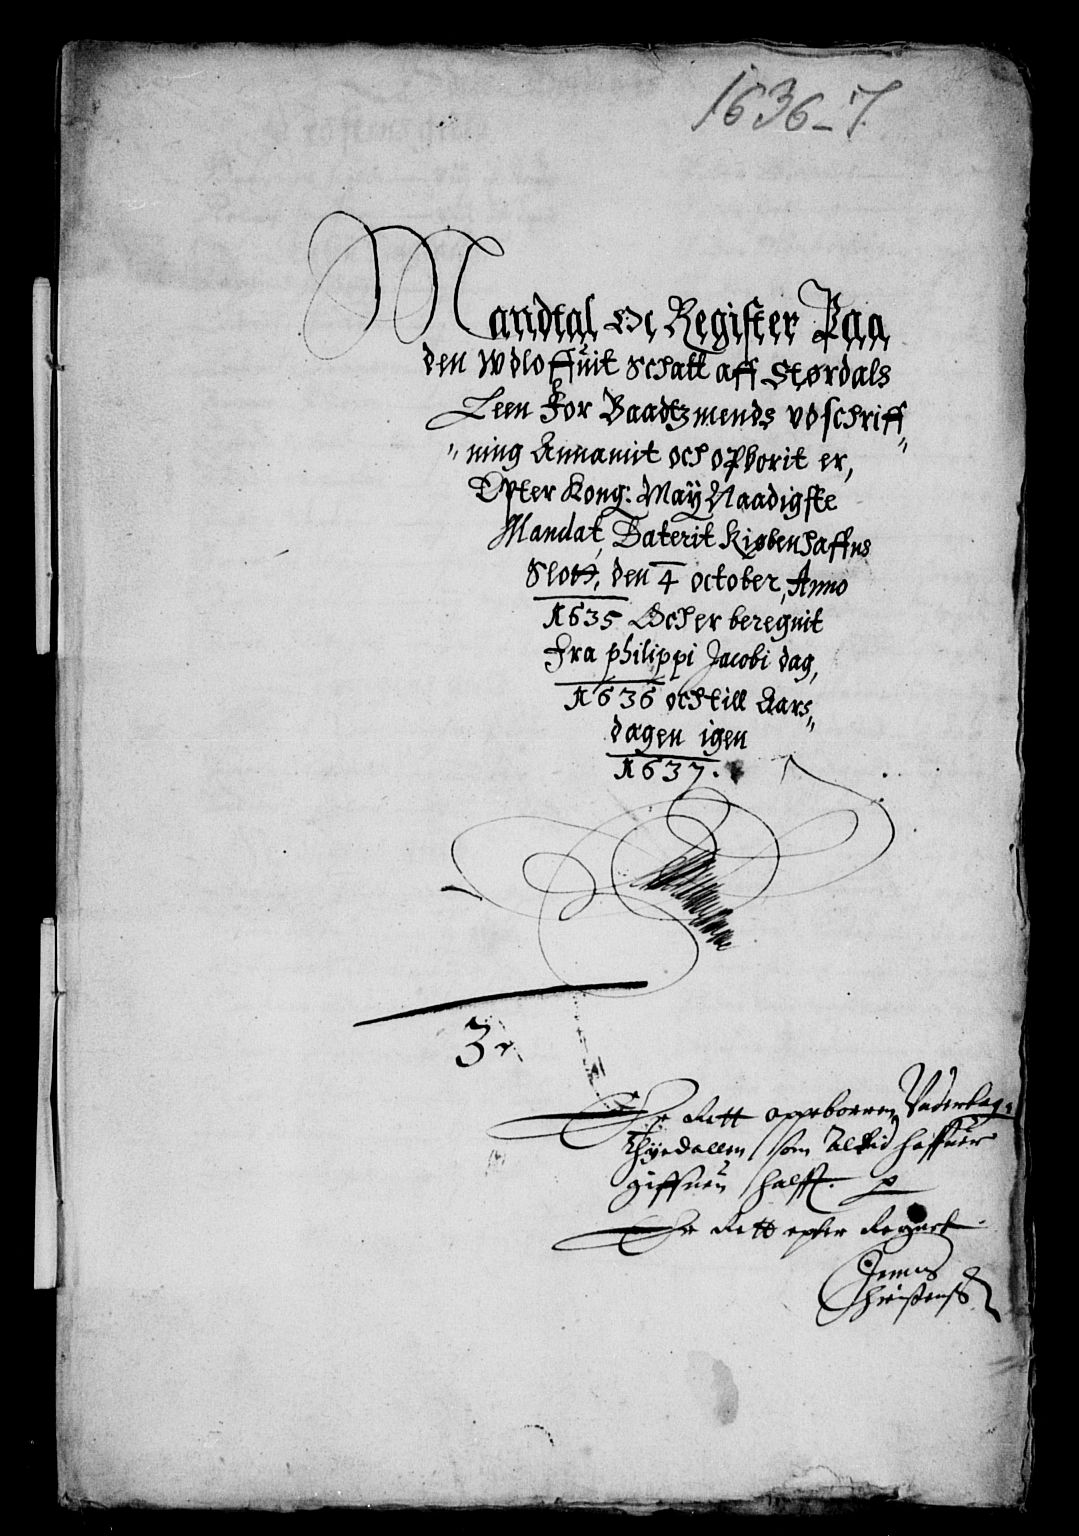 1636-7
Mandtal Oc Register Paa
den Wdloffuit Schatt aff Størdals
Leen for Baadtzmends vdschriff
"ning Annamit och opborit er,
Epter Kong: May Naadigste
Mandat, Daterit Kiøbenhaffns
Slott, den 4 october, Anno
1635 Och er beregnit
fra philippi Jacobi dag,
1636 och till Aars"
dagen igen
1637.
3
Er Rett oppeboeren,
Thyedallen som altid haffuer
giffuen halfft.
Er Rett epter Regart
Jens
Christensß